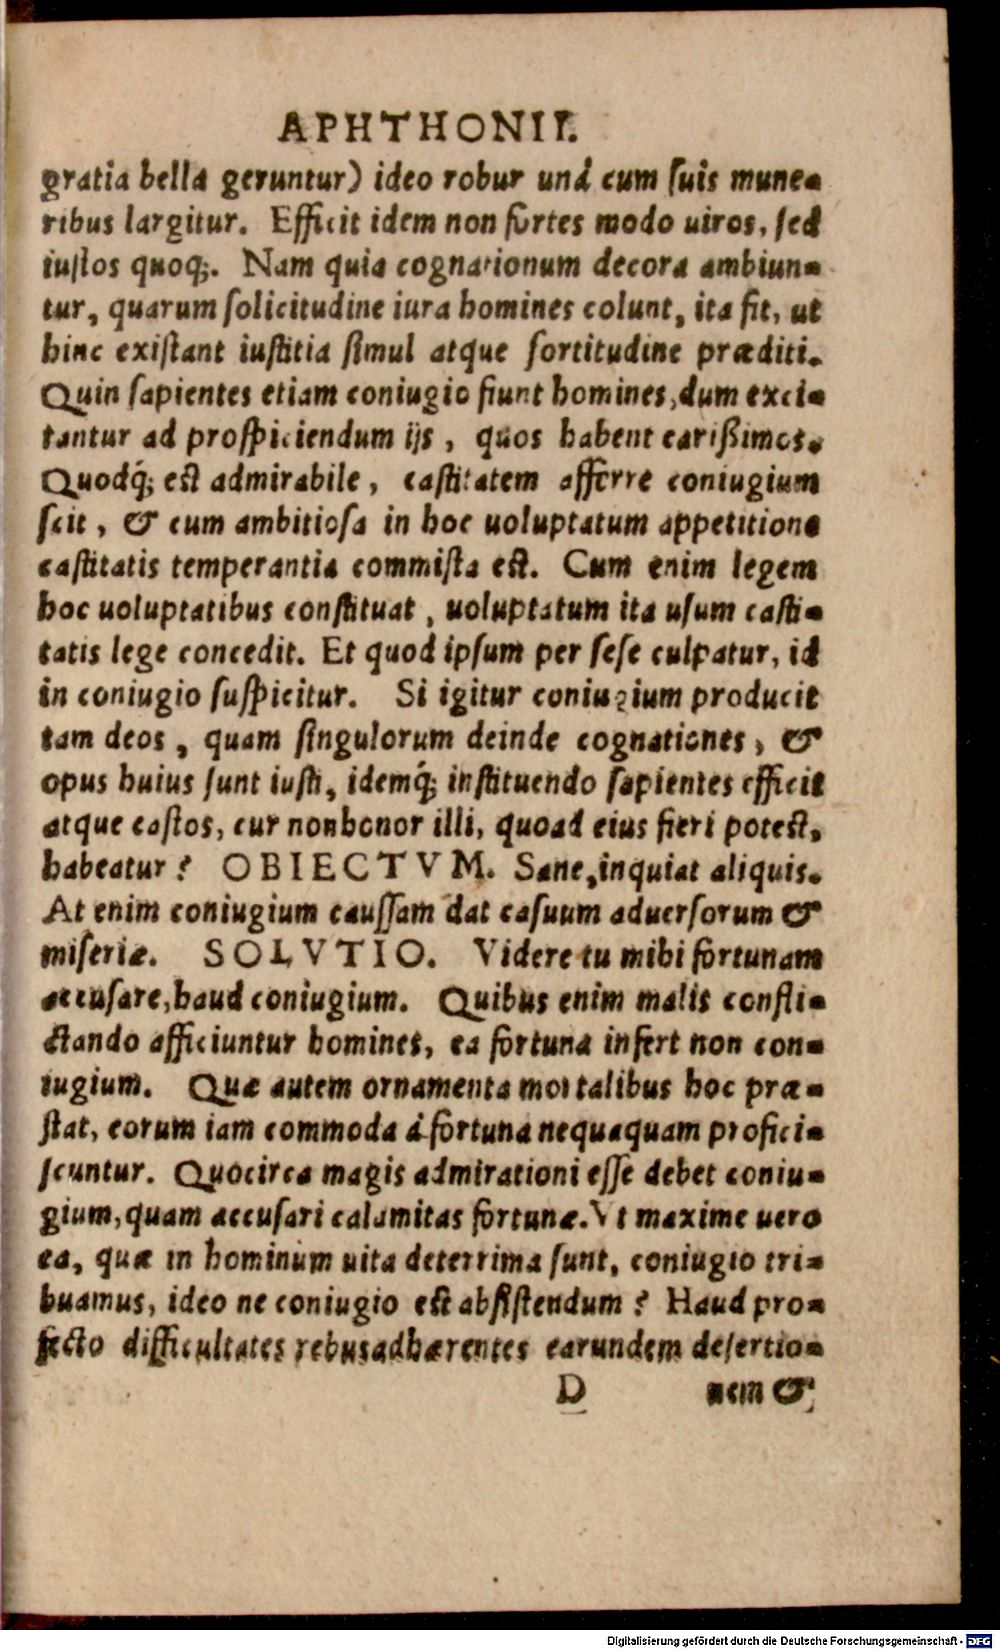 APHTHONII.
gratia bella geruntur) ideo robur unà cum ſuis mune-
ribus largitur. Efficit idem non fortes modo uiros, ſed
iuſtos quoq;. Nam quia cognationum decora ambiun-
tur, quarum ſolicitudine iura homines colunt, ita fit, ut
hinc existant iustitia ſimul atque fortitudine præditi.
Quin ſapientes etiam coniugio fiunt homines, dum exci-
tantur ad proſpiciendum ijs, quos habent carißimos.
Quodq́; est admirabile, castitatem afferre coniugium
ſcit, & cum ambitioſa in hoc uoluptatum appetitione
castitatis temperantia commiſta est. Cum enim legem
hoc uoluptatibus constituat, uoluptatum ita uſum casti-
tatis lege concedit. Et quod ipſum per ſeſe culpatur, id
in coniugio ſuſpicitur. Si igitur coniugium producit
tam deos, quam ſingulorum deinde cognationes, &
opus huius ſunt iusti, idemq́; instituendo ſapientes efficit
atque castos, cur non honor illi, quoad eius fieri potest,
habeatur? OBIECTVM. Sane, inquiat aliquis.
At enim coniugium cauſſam dat caſuum aduerſorum &
miſeriæ. SOLVTIO. Videre tu mihi fortunam
accuſare, haud coniugium. Quibus enim malis confli-
ctando afficiuntur homines, ea fortuna infert non con-
iugium. Quæ autem ornamenta mortalibus hoc præ-
ſtat, eorum iam commoda à fortuna nequaquam profici-
ſcuntur. Quocirca magis admirationi eſſe debet coniu-
gium, quam accuſari calamitas fortunæ. Vt maxime uero
ea, quæ in hominum uita deterrima ſunt, coniugio tri-
buamus, ideo ne coniugio est abſistendum? Haud pro-
fecto difficultates rebus adhærentes earundem deſertio-
D nem &
Digitalisierung gefördert durch die Deutsche Forschungsgemeinschaft - DFG